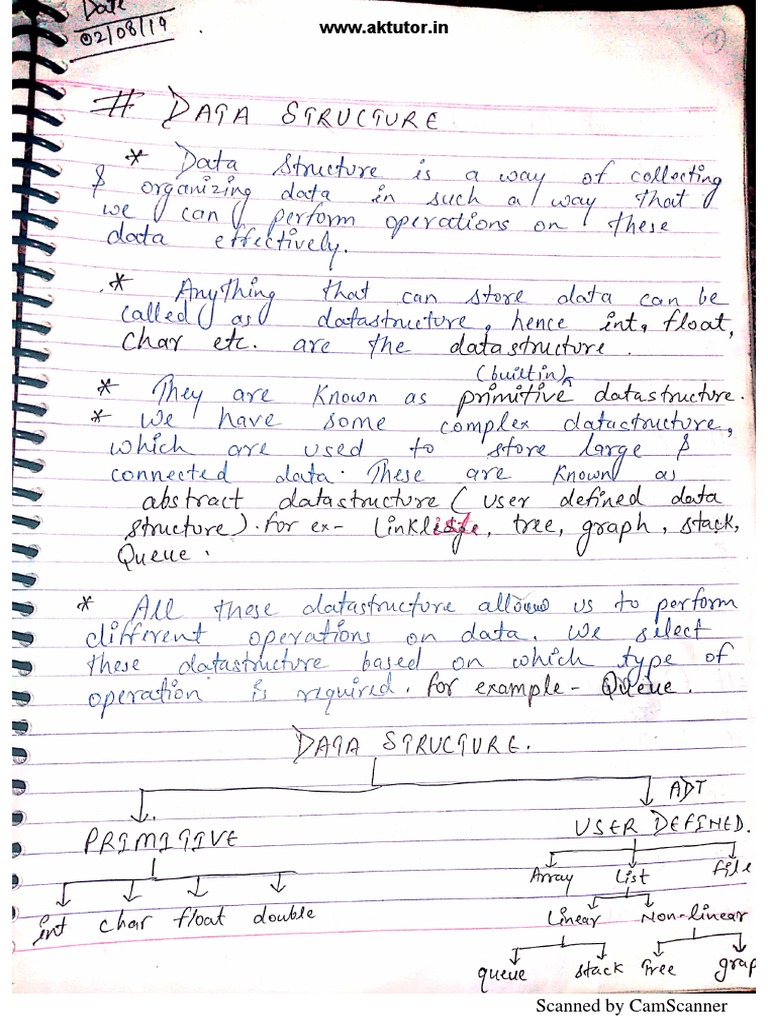 Date
02/08/19
www.aktutor.in
1
# DATA STRUCTURE
* Data Structure is a way of collecting
& organizing data in such a way that
we can perform operations on these
data effectively.
* Anything that can store data can be
called as datastructure, hence int, float,
char etc. are the datastructure.
(builtin)
* They are known as primitive datastructure.
* We have some complex datastructure,
which are used to store large &
connected data. These are known as
abstract datastructure (user defined data
structure). for ex- linklist, tree, graph, stack,
Queue.
* All these datastructure allows us to perform
different operations on data. We select
these datastructure based on which type of
operation is required. for example - Queue.
DATA STRUCTURE.
ADT
PRIMITIVE USER DEFINED.
Array List file
int char float double Linear Non-linear
queue stack Tree grap
Scanned by CamScanner